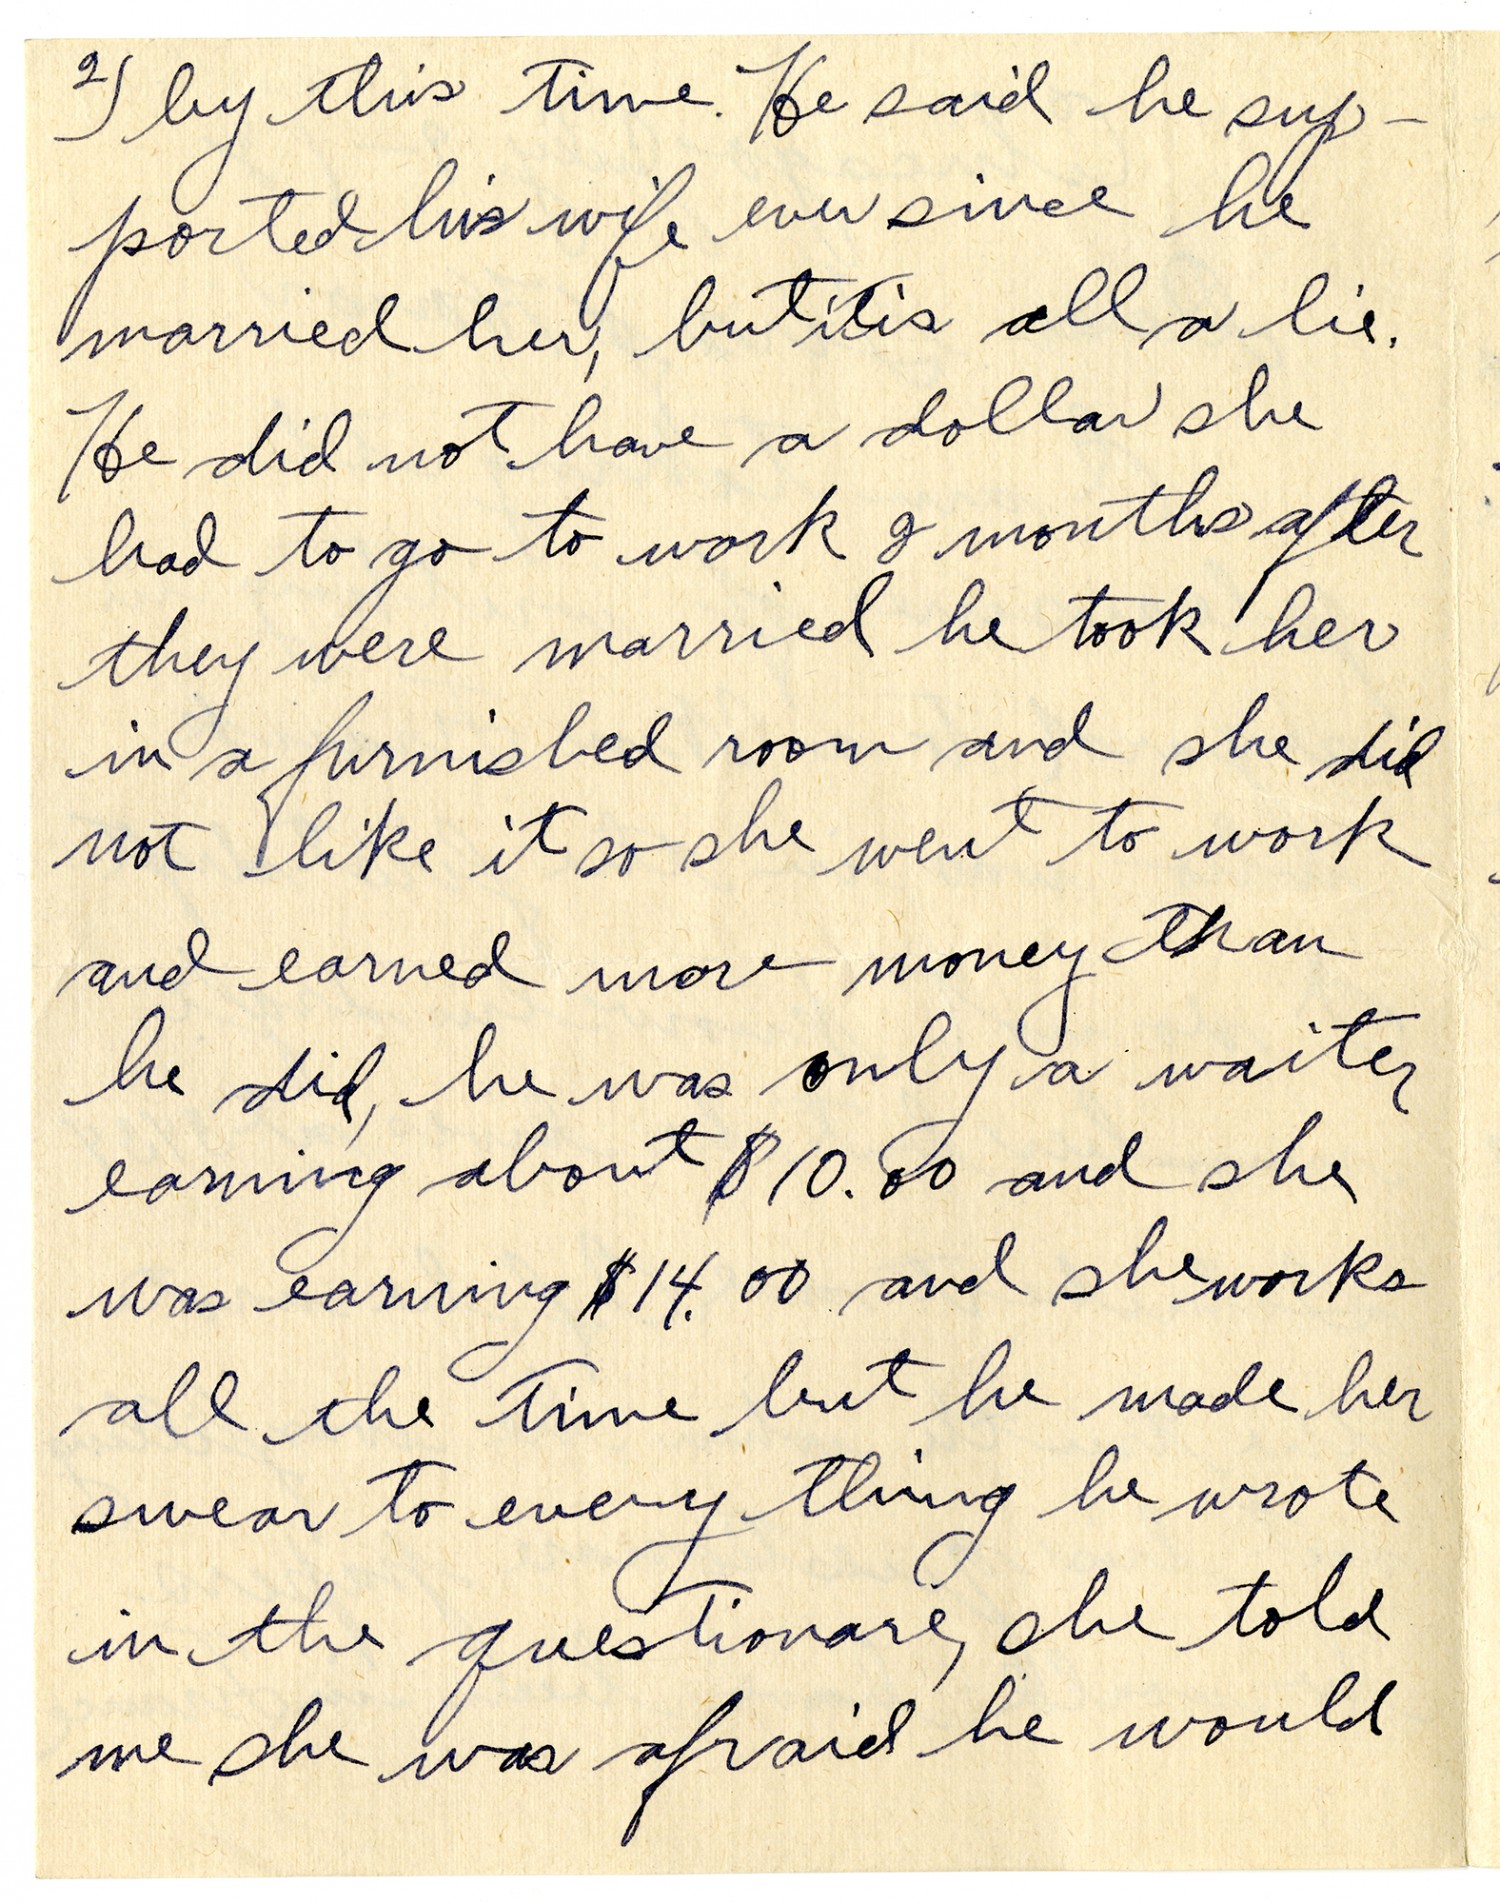 2) by this time. He said he sup-
ported his wife ever since he
married her, but it is all a lie.
He did not have a dollar she
had to go to work 2 months after
they were married he took her
in a furnished room and she did
not like it so she went to work
and earned more money than
he did, he was only a waiter
earning about $10.00 and she
was earning $14.00 and she works
all the time but he made her
swear to every thing he wrote
in the questionare, she told
me she was afraid he would